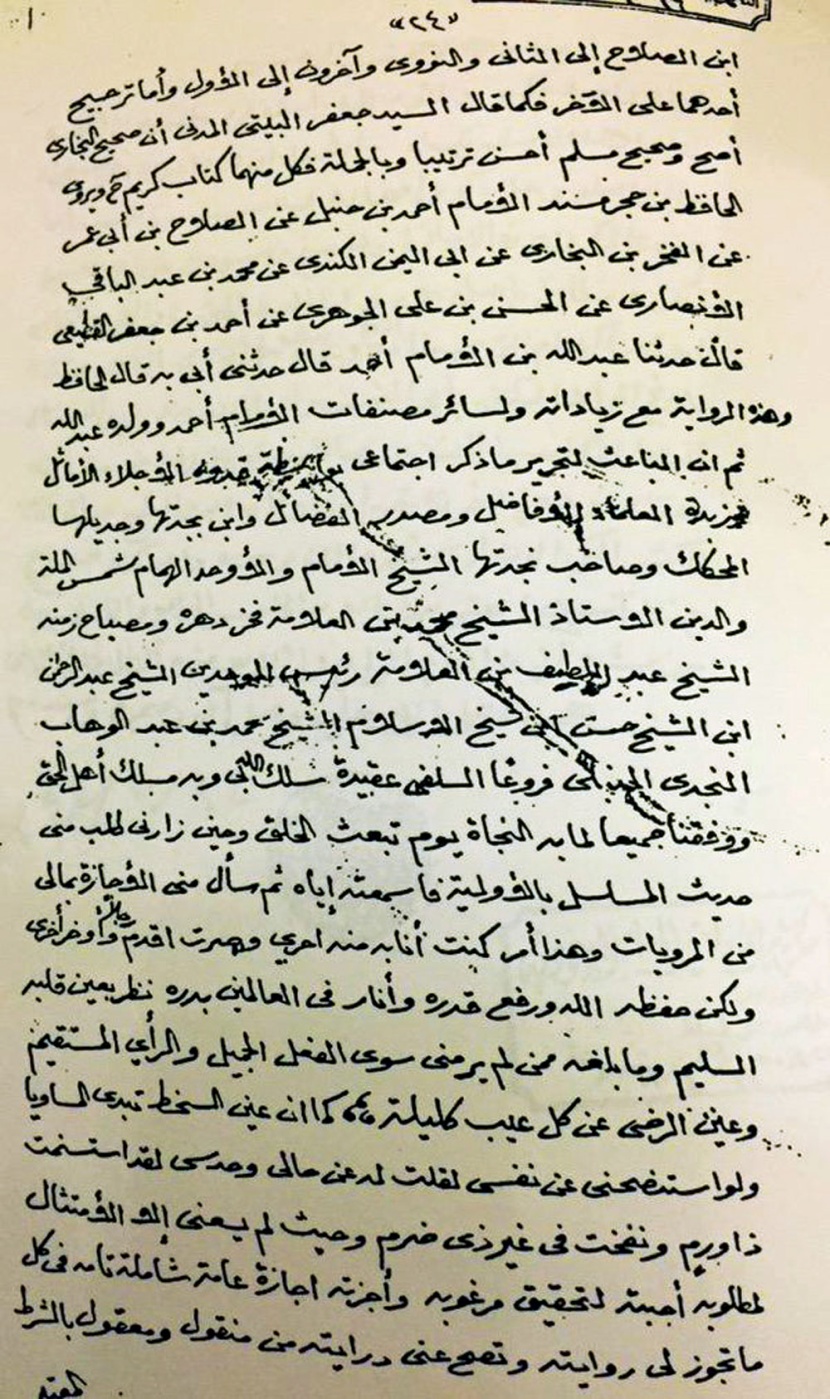 «٢٤»
ابن الصلاح إلى الثانى والنووى وآخرون إلى الأول وأما ترجيح
أحدهما على الآخر فكما قال السيد جعفر البيتى المدنى أن صحيح البخارى
أصح وصحيح مسلم أحسن ترتيبا وبالجملة فكل منهما كتاب كريم ح ويروى
الحافظ بن حجر مسند الأمام أحمد بن حنبل عن الصلاح بن أبى عمر
عن الفخر بن البخارى عن ابى اليمن الكندى عن محمد بن عبد الباقى
الأنصارى عن الحسن بن على الجوهرى عن أحمد بن جعفر القطيعى
قال حدثنا عبد الله بن الأمام أحمد قال حدثنى أبى به قال الحافظ
وهذه الرواية مع زياداته ولسائر مصنفات الأمام أحمد وولده عبد الله
ثم ان الباعث لتحرير ما ذكر اجتماعى قدوة الأجلاء الأماثل
زبدة العلماء الأفاضل ومصدر الفضائل وابن بجدتها وجديلها
المحكك وصاحب نجدتها الشيخ الأمام والأوحد الهمام شمس الملة
والدين الاستاذ الشيخ محمد بن العلامة فخر دهره ومصباح زمنه
الشيخ عبد اللطيف بن العلامة رئيس الموحدين الشيخ عبد الرحمن
ابن الشيخ حسن ابن شيخ الاسلام الشيخ محمد بن عبد الوهاب
النجدى الحنبلى فروعًا السلفى عقيدة سلك الله بى وبه مسلك أهل الحق
ووفقنا جميعا لما به النجاة يوم تبعث الخلق وحين زارنى طلب منى
حديث المسلسل بالأولية فاسمعته إياه ثم سأل منى الأجازة بمالى
من المرويات وهذا أمر كنت أنا به منه احرى وصرت اقدم رجلا وأوخر أخرى
ولكن حفظه الله ورفع قدره وأنار فى العالمين بدره نظر بعين قلبه
السليم وما بلغه ممن لم ير منى سوى الفعل الجميل والرأي المستقيم
وعين الرضى عن كل عيب كليلة كما ان عين السخط تبدى المساويا
ولو استنصحنى عن نفسى لقلت له عن حالى وحدسى لقد استسمنت
ذا ورم ونفخت فى غير ذى ضرم وحيث لم يسعنى إلا الأمتثال
لمطلوبه أجبته لتحقيق مرغوبه وأجزته اجازة عامة شاملة تامه فى كل
ما تجوز لى روايته وتصح عنى درايته من منقول ومعقول بالشرط